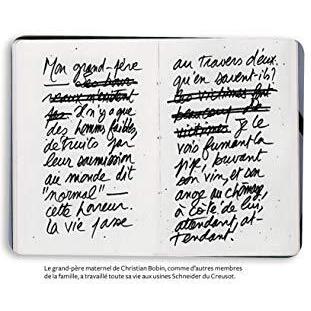 Mon grand-père
il n'y a que
des hommes faibles,
détruits par
leur soumission
au monde dit
"normal" —
cette horreur.
la vie passe
au travers d'eux.
qu'en savent-ils?
je le
vois fumant la
pipe, buvant
son vin, et son
ange au chômage,
à côté de lui,
attendant, at-
tendant.
Le grand-père maternel de Christian Bobin, comme d'autres membres
de la famille, a travaillé toute sa vie aux usines Schneider du Creusot.